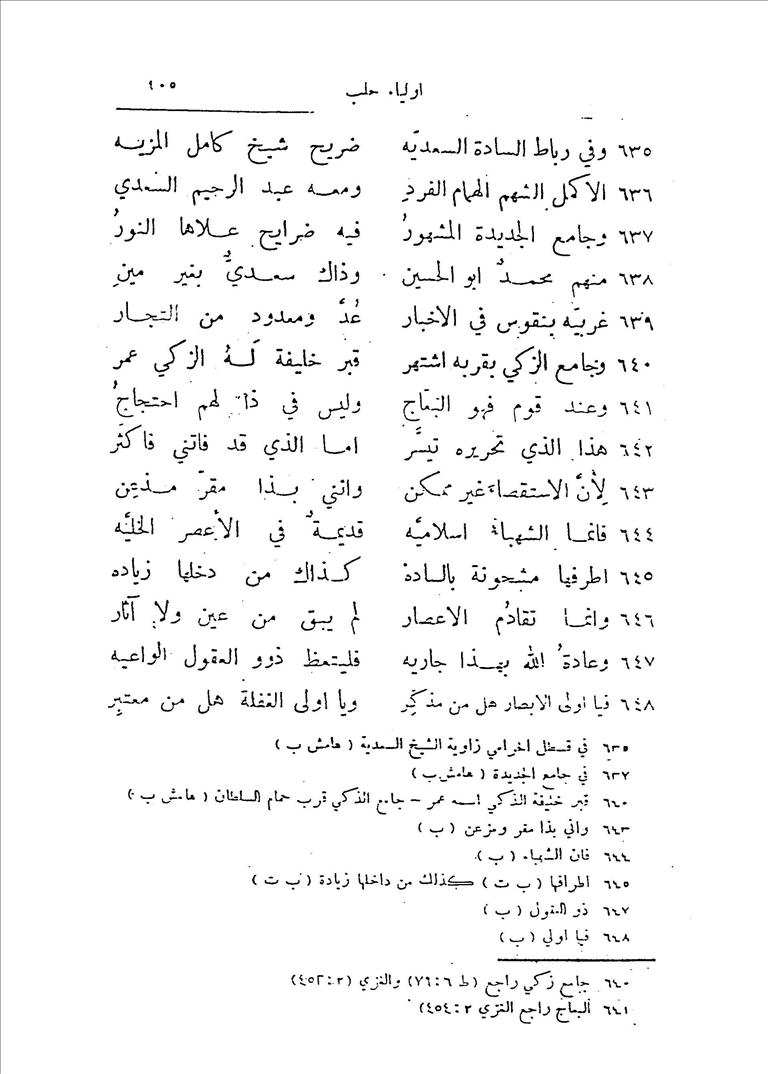 اولياء حلب ١٠٥
٦٣٥ وفي رباط السادة السعديّه ضريح شيخ كامل المزيّه
٦٣٦ الاكمل الشهم الهمام الفردِ ومعه عبد الرحيم السعدي
٦٣٧ وجامع الجديدة المشهورُ فيه ضرايح علاها النورُ
٦٣٨ منهم محمدٌ ابو الحسين وذاك سعديٌّ بغير مينِ
٦٣٩ غربيّه بنقوس في الاخبار عُدَّ ومعدود من التجار
٦٤٠ وبجامع الزكي بقربه اشتهر قبر خليفة لَهُ الزكي عمر
٦٤١ وعند قوم فهو البعّاج وليس في ذا لهم احتجاجُ
٦٤٢ هذا الذي تحريره تيسَّر اما الذي قد فاتني فاكثَر
٦٤٣ لِأنَّ الاستقصاء غير ممكن وانني بذا مقرّ مذعِن
٦٤٤ فانما الشهباءُ اسلاميَّه قديمةٌ في الأعصر الخليَّه
٦٤٥ اطرفها مشحونة بالسادة كذاك من دخلها زياده
٦٤٦ وانما تقادُم الاعصار لم يبق من عين ولا آثار
٦٤٧ وعادةُ الله بهذا جاريه فليتعظ ذوو العقول الواعيه
٦٤٨ فيا اولى الابصار هل من مذكِّرِ ويا اولى الغفلة هل من معتبِر
٦٣٥ في قسطل الحرامي زاوية الشيخ السعدية ( هامش ب )
٦٣٧ في جامع الجديدة ( هامش ب )
٦٤٠ قبر خليفة الذكي اسمه عمر – جامع الذكي قرب حمام السلطان ( هامش ب )
٦٤٣ واني بذا مقر ومزعن ( ب )
٦٤٤ فان الشهباء ( ب )
٦٤٥ اطرافها ( ب ت ) كذلك من داخلها زيادة ( ب ت )
٦٤٧ ذو العقول ( ب )
٦٤٨ فيا اولي ( ب )
٦٤٠ جامع زكي راجع ( ط ٦ : ٧٩) والغزي (٢ : ٤٥٢)
٦٤١ البعاج راجع الغزي ٢ : ٤٥٤)